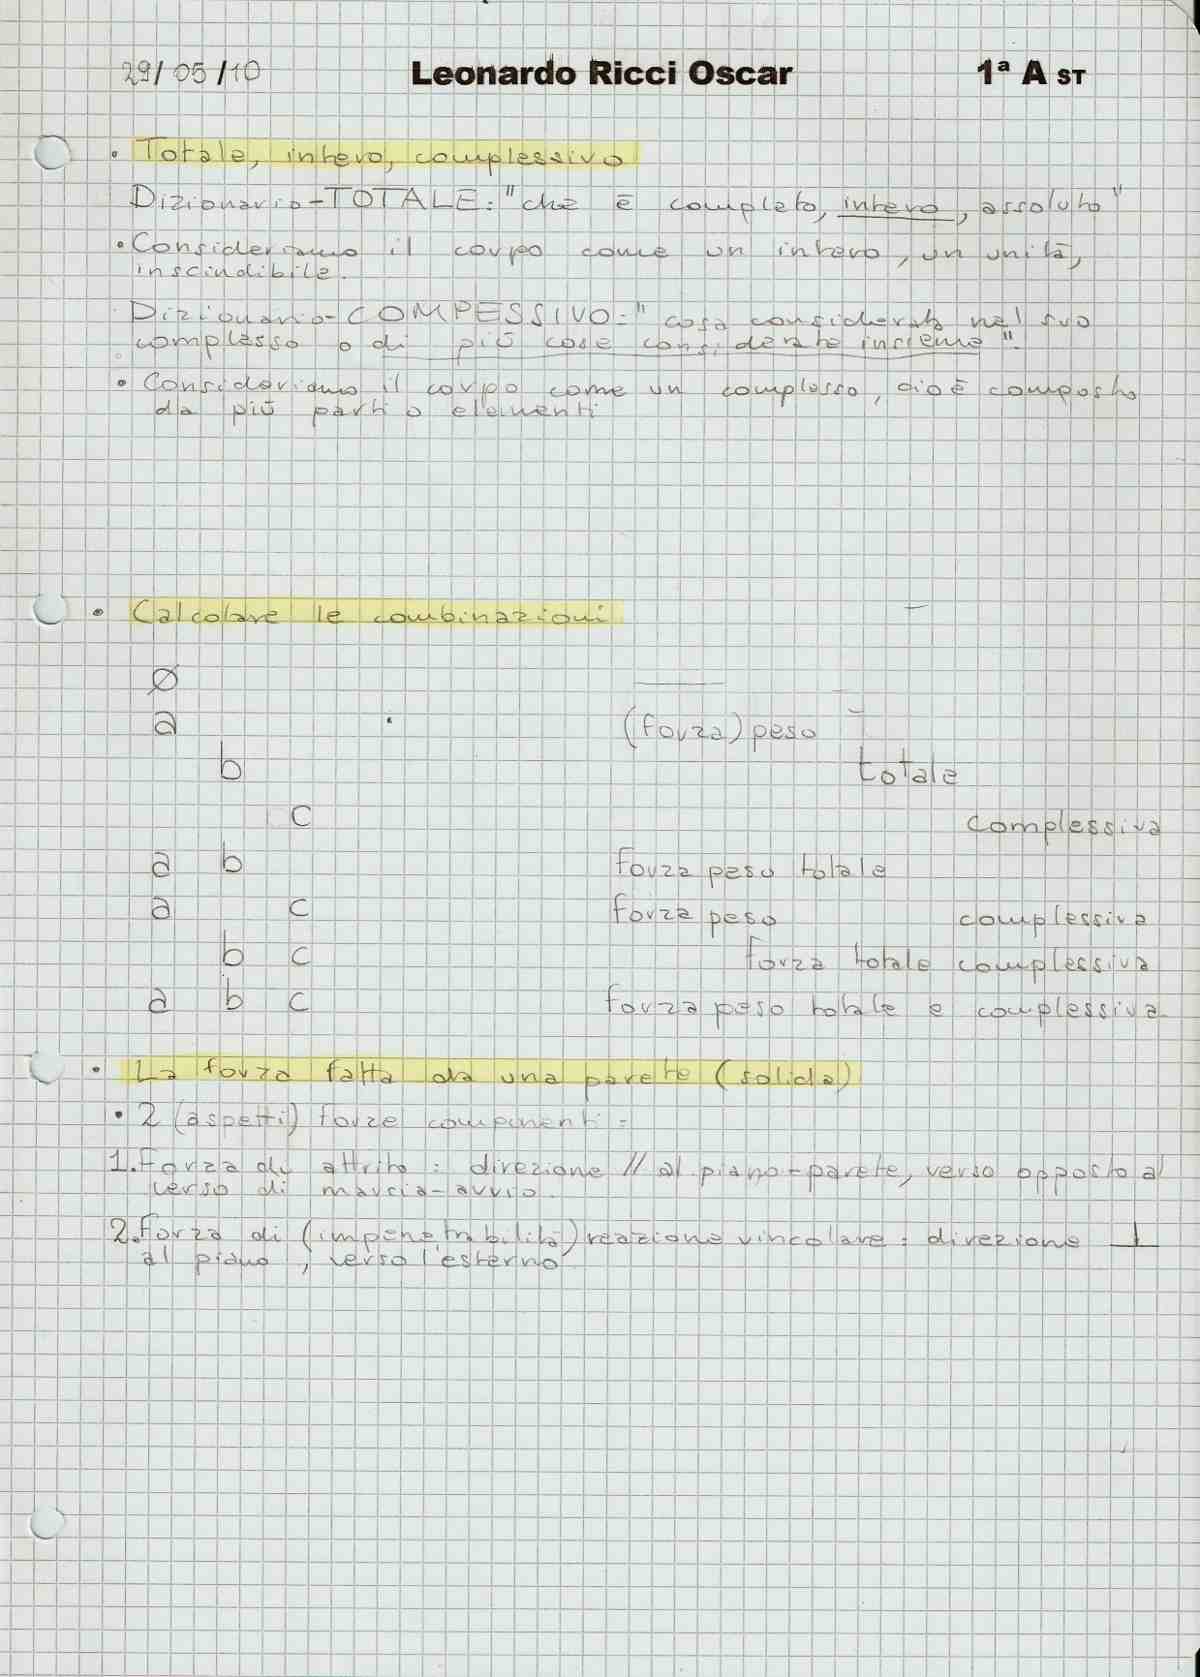 29/05/10 Leonardo Ricci Oscar 1ª A ST
• Totale, intero, complessivo
Dizionario-TOTALE: "che è completo, intero, assoluto"
• Consideriamo il corpo come un intero, un unità,
inscindibile.
Dizionario-COMPESSIVO: "cosa considerata nel suo
complesso o di più cose considerate insieme".
• Consideriamo il corpo come un complesso, cioè composto
da più parti o elementi
• Calcolare le combinazioni
Ø
a (forza) peso
b totale
c complessiva
a b forza peso totale
a c forza peso complessiva
b c forza totale complessiva
a b c forza peso totale e complessiva
• La forza fatta da una parete (solida)
• 2 (aspetti) forze componenti:
1. Forza di attrito: direzione // al piano-parete, verso opposto al
verso di marcia-avvio.
2. Forza di (impenetrabilità) reazione vincolare: direzione ⊥
al piano, verso l'esterno